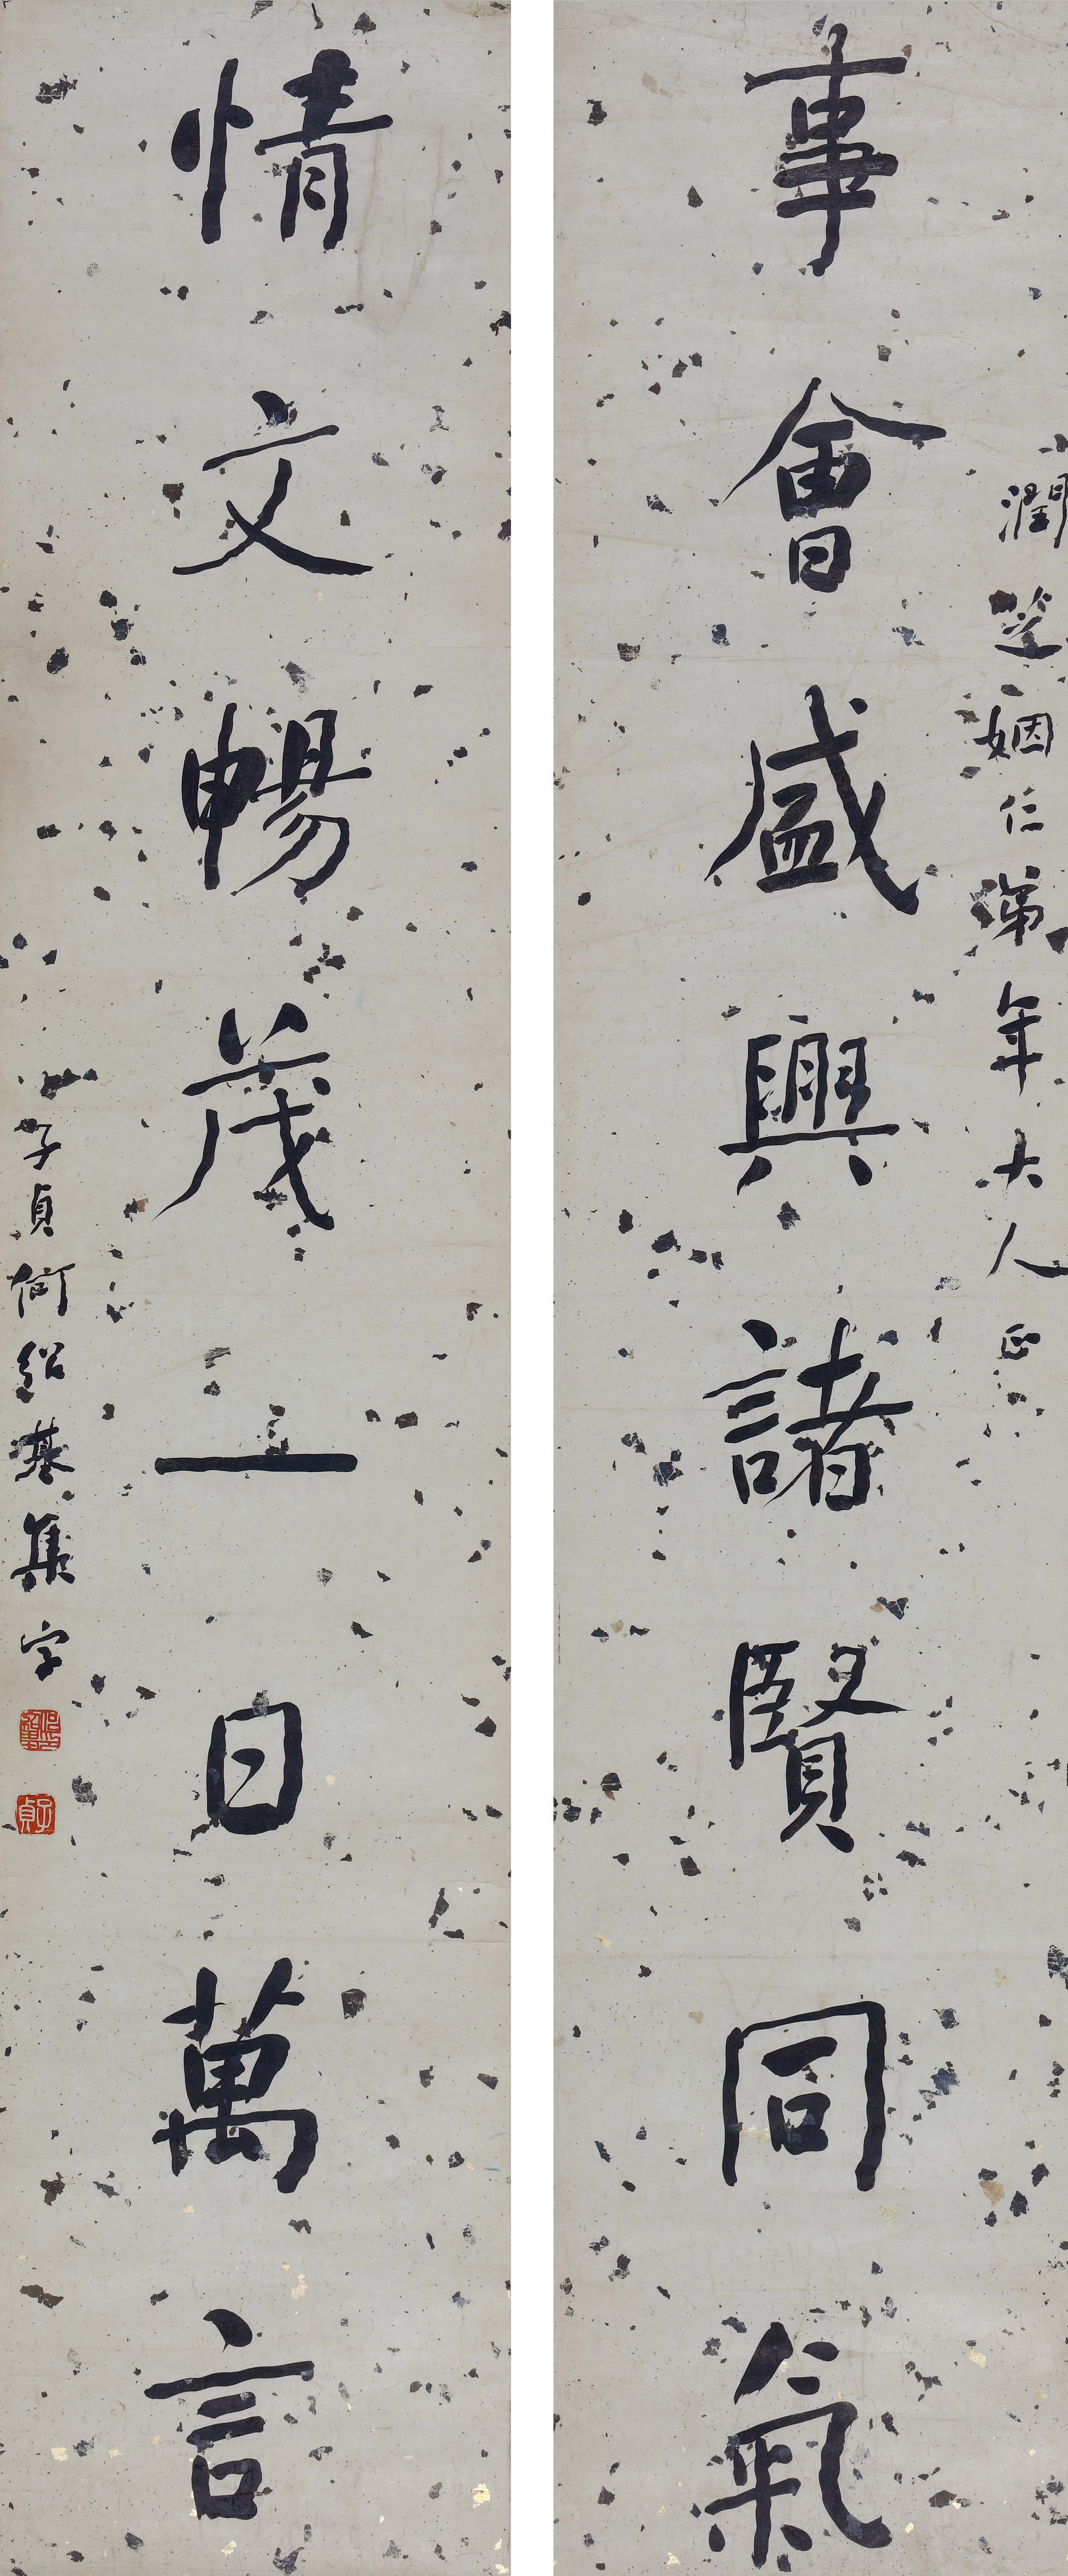 潤芝姻仁弟年大人正
事會盛興諸賢同氣
情文暢茂一日萬言
子貞何紹基集字
子貞